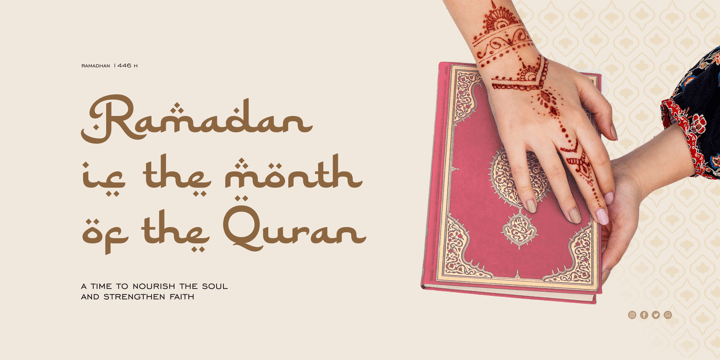 RAMADHAN 1446 H
Ramadan
is the month
of the Quran
A TIME TO NOURISH THE SOUL
AND STRENGTHEN FAITH